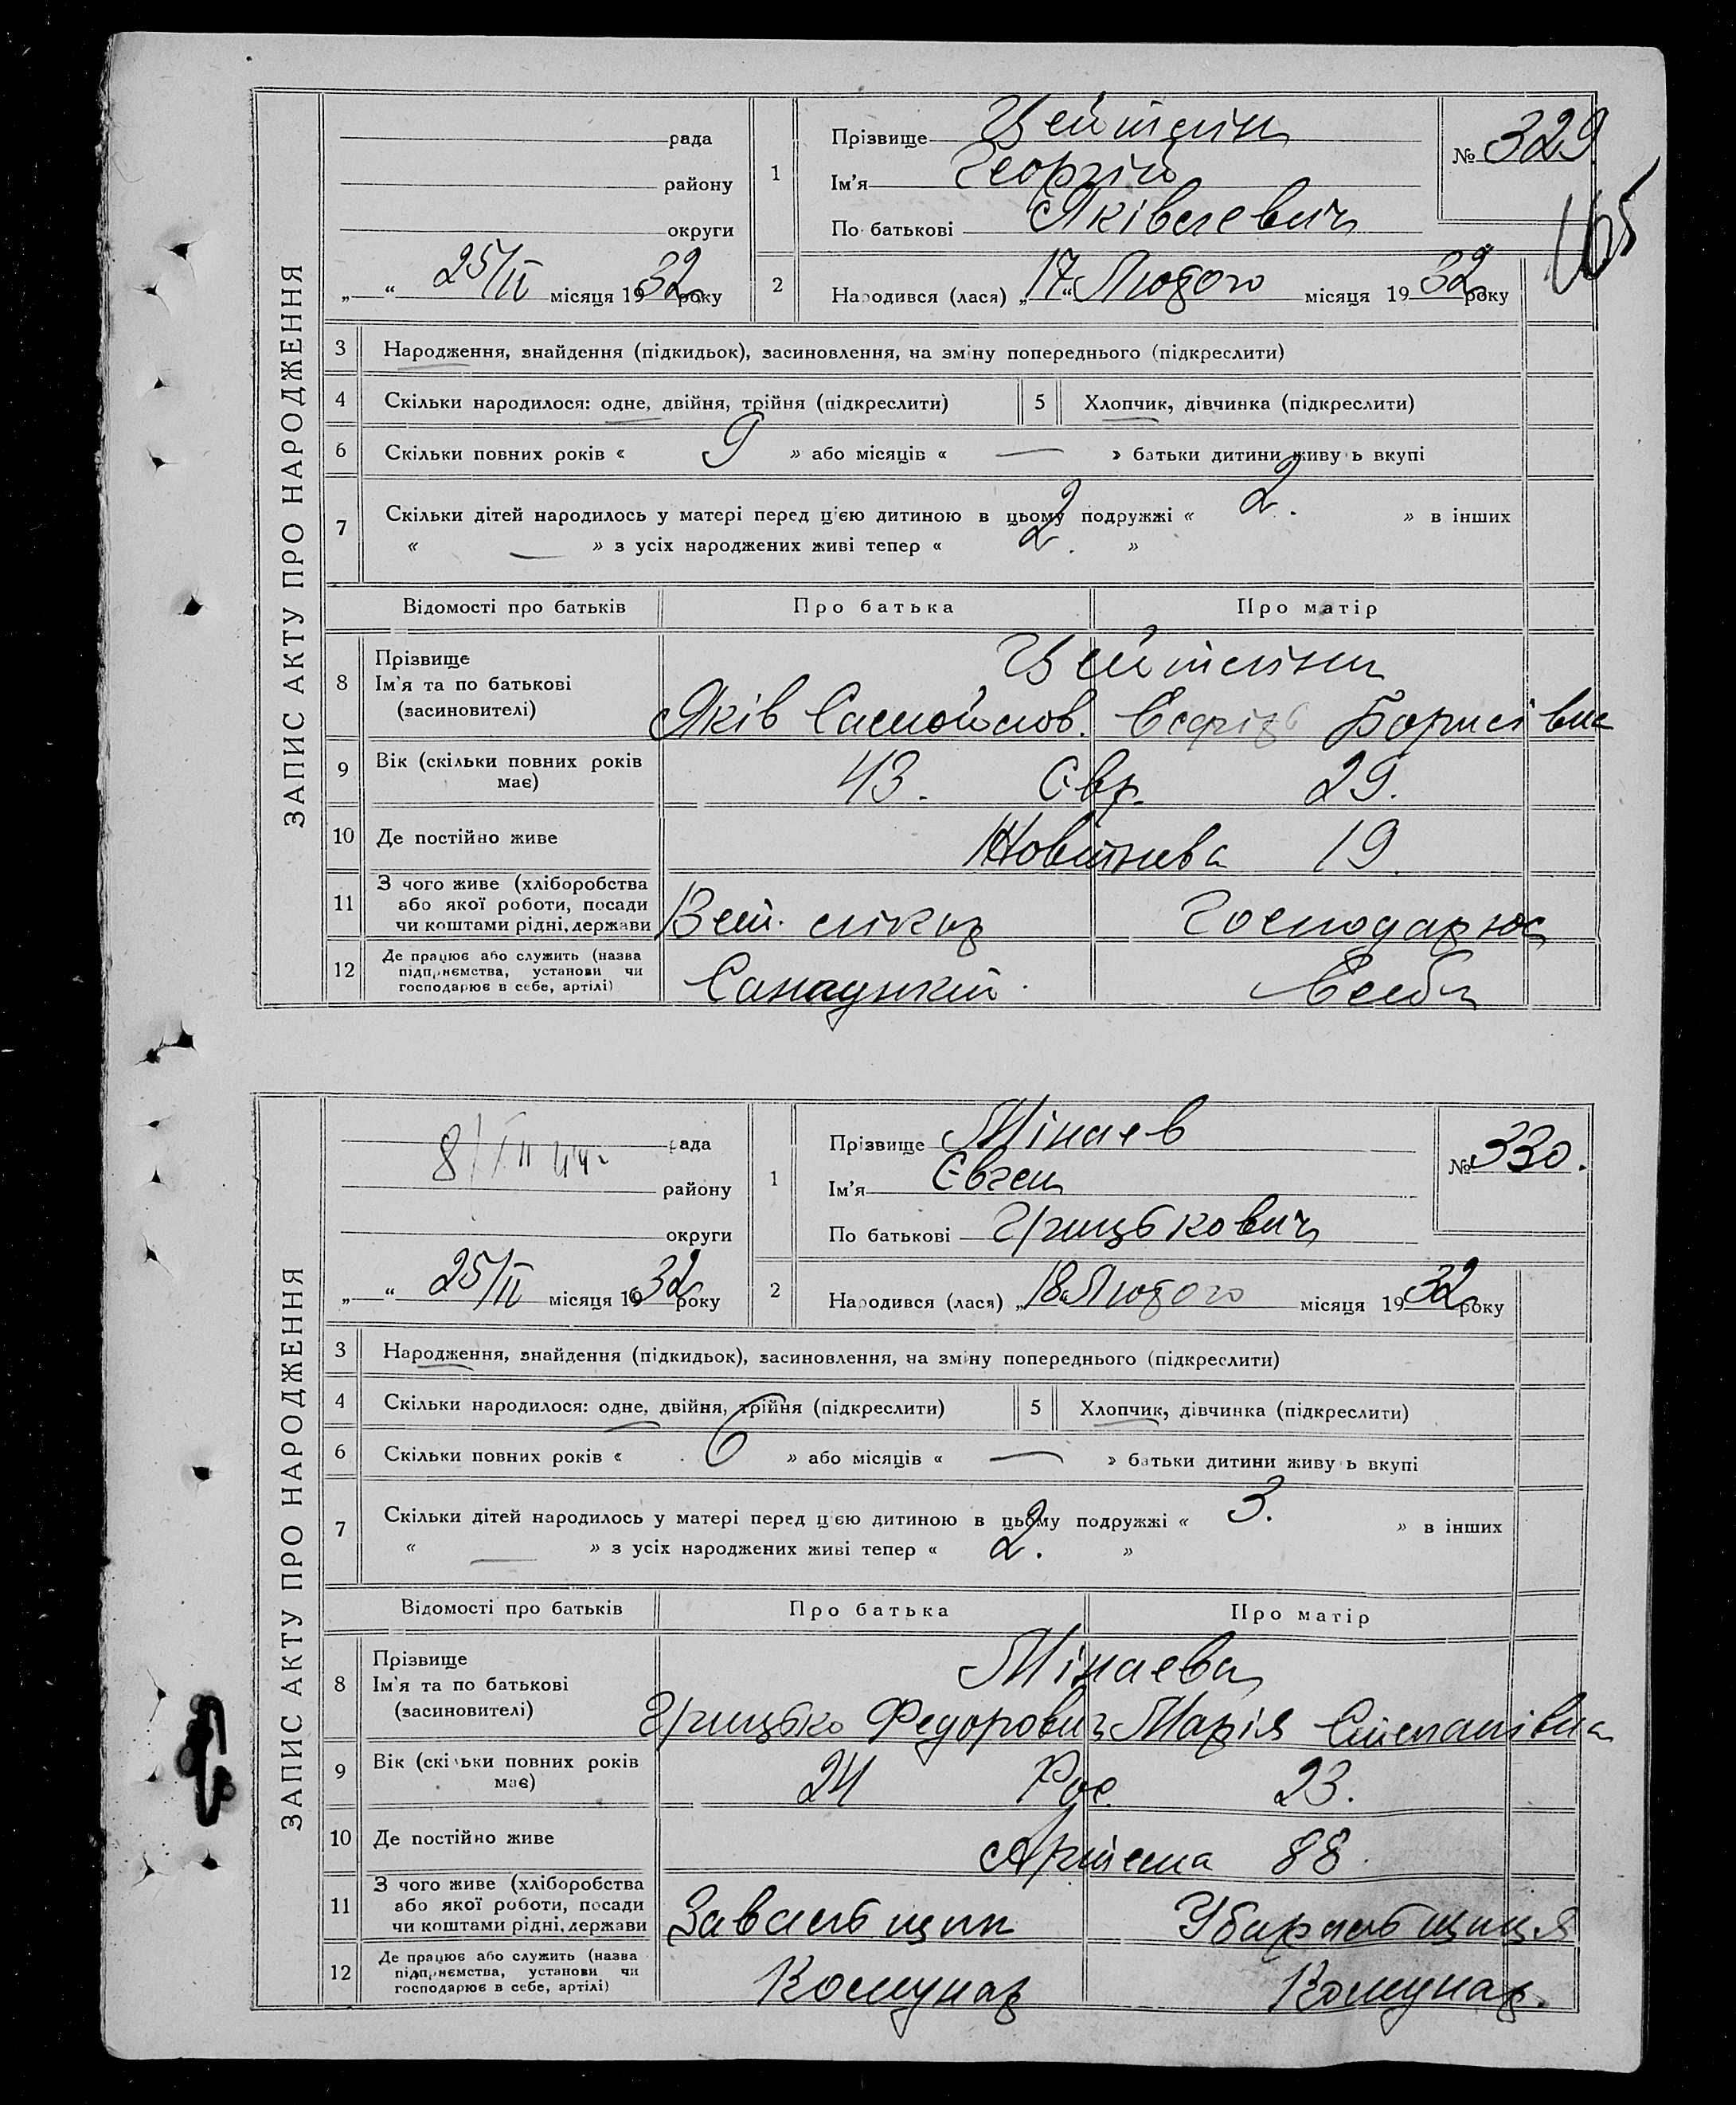 ЗАПИС АКТУ ПРО НАРОДЖЕННЯ
рада
району
округи
„ “ 25/II місяця 1932 року
1
Прізвище Цейтлін
Ім'я Георгій
По батькові Яківлевич
№ 329
165
2
Народився (лася) „17“ Лютого місяця 1932 року
3 Народження, знайдення (підкидьок), засиновлення, на зміну попереднього (підкреслити)
4 Скільки народилося: одне, двійня, трійня (підкреслити) 5 Хлопчик, дівчинка (підкреслити)
6 Скільки повних років « 9 » або місяців « — » батьки дитини живуть вкупі
7 Скільки дітей народилось у матері перед цією дитиною в цьому подружжі « 2. » в інших
« — » з усіх народжених живі тепер « 2. »
Відомості про батьків Про батька Про матір
8 Прізвище
Ім'я та по батькові
(засиновителі)
Цейтліни
Яків Самойлов. Борисівна
9 Вік (скільки повних років має) 43. Євр. 29.
10 Де постійно живе 19.
11 З чого живе (хліборобства або якої роботи, посади чи коштами рідні, держави Вет. лікар Господарює
12 Де працює або служить (назва підприємства, установи чи господарює в себе, артілі)
ЗАПИС АКТУ ПРО НАРОДЖЕННЯ
рада
району
округи
„ “ 25/II місяця 1932 року
1
Прізвище Мінаев
Ім'я Євген
По батькові Грицькович
№ 330.
2
Народився (лася) „18“ Лютого місяця 1932 року
3 Народження, знайдення (підкидьок), засиновлення, на зміну попереднього (підкреслити)
4 Скільки народилося: одне, двійня, трійня (підкреслити) 5 Хлопчик, дівчинка (підкреслити)
6 Скільки повних років « 6 » або місяців « — » батьки дитини живуть вкупі
7 Скільки дітей народилось у матері перед цією дитиною в цьому подружжі « 3. » в інших
« — » з усіх народжених живі тепер « 2. »
Відомості про батьків Про батька Про матір
8 Прізвище
Ім'я та по батькові
(засиновителі)
Мінаева
Грицько Федорович Марія Степанівна
9 Вік (скільки повних років має) 24 Рос. 23.
10 Де постійно живе Артема 88.
11 З чого живе (хліборобства або якої роботи, посади чи коштами рідні, держави Завальщик Убиральщиця
12 Де працює або служить (назва підприємства, установи чи господарює в себе, артілі) Комунар Комунар.